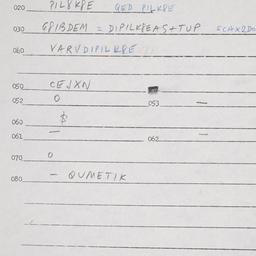 020 PILKKPE QED PILKPE
030 GPIBDEM = DIPILKPEAS+TUP
040 VARVDIPILKPE
050 CEJXN
052 0 053 —
060 $
061 — 062 —
070 0
080 — QUMETIK